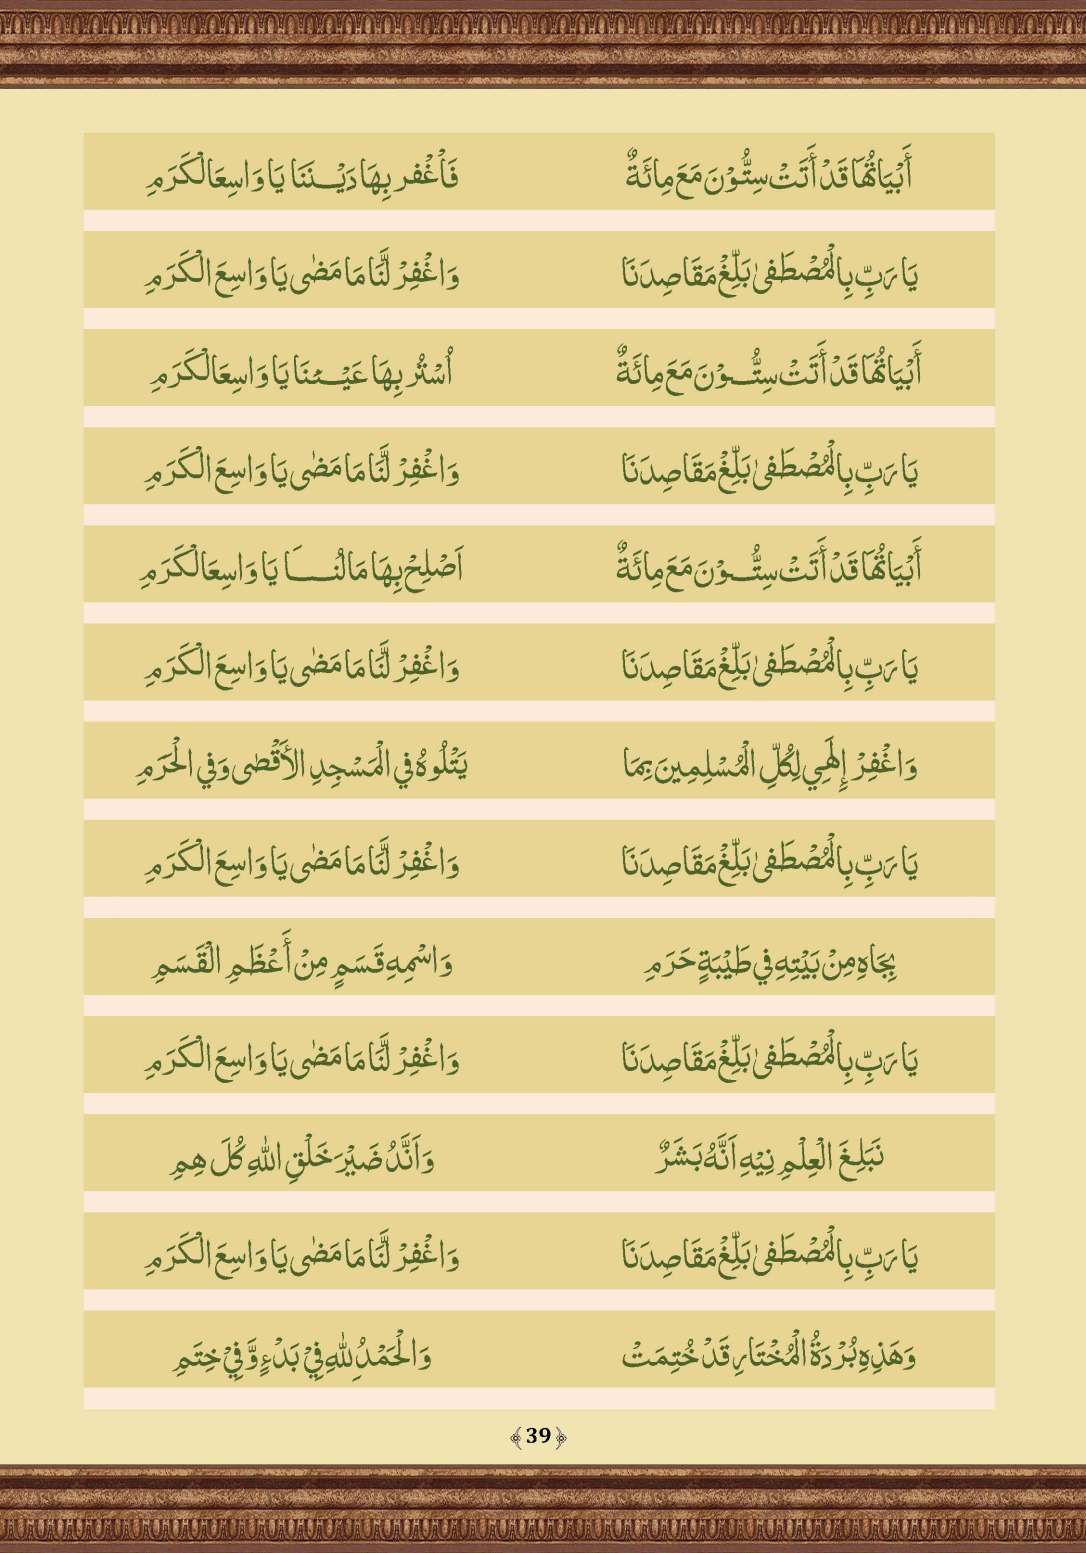 أَبْيَاتُهَا قَدْ أَتَتْ سِتُّوْنَ مَعَ مِائَةٌ فَاْغْفر بِهَا دَيْـنَنَا يَا وَاسِعَالْكَرَمِ
يَا رَبِّ بِالْمُصْطَفىٰ بَلِّغْ مَقَاصِدَنَا وَاغْفِرْ لَنَّا مَا مَضٰى يَا وَاسِعَ الْكَرَمِ
أَبْيَاتُهَا قَدْ أَتَتْ سِتُّـوْنَ مَعَ مِائَةٌ اُسْتُر بِهَا عَيْـنَنَا يَا وَاسِعَالْكَرَمِ
يَا رَبِّ بِالْمُصْطَفىٰ بَلِّغْ مَقَاصِدَنَا وَاغْفِرْ لَنَّا مَا مَضٰى يَا وَاسِعَ الْكَرَمِ
أَبْيَاتُهَا قَدْ أَتَتْ سِتُّـوْنَ مَعَ مِائَةٌ اَصْلِحْ بِهَا مَالُنَـــا يَا وَاسِعَالْكَرَمِ
يَا رَبِّ بِالْمُصْطَفىٰ بَلِّغْ مَقَاصِدَنَا وَاغْفِرْ لَنَّا مَا مَضٰى يَا وَاسِعَ الْكَرَمِ
وَاغْفِرْ إِلَهِي لِكُلِّ الْمُسْلِمِينَ بِمَا يَتْلُوهُ فِي الْمَسْجِدِ الأَقْصٰى وَفِي الْحَرَمِ
يَا رَبِّ بِالْمُصْطَفىٰ بَلِّغْ مَقَاصِدَنَا وَاغْفِرْ لَنَّا مَا مَضٰى يَا وَاسِعَ الْكَرَمِ
بِجَاهِ مِنْ بَيْتِهِ فِي طَيْبَةٍ حَرَمِ وَاسْمِهِ قَسَمٍ مِنْ أَعْظَمِ الْقَسَمِ
يَا رَبِّ بِالْمُصْطَفىٰ بَلِّغْ مَقَاصِدَنَا وَاغْفِرْ لَنَّا مَا مَضٰى يَا وَاسِعَ الْكَرَمِ
نَبَلِغَ الْعِلْمِ نِيْهِ اَنَّهُ بَشَرٌ وَاَنَّدُ ضَيْرَ خَلْقِ اللهِ كُلَ هِمِ
يَا رَبِّ بِالْمُصْطَفىٰ بَلِّغْ مَقَاصِدَنَا وَاغْفِرْ لَنَّا مَا مَضٰى يَا وَاسِعَ الْكَرَمِ
وَهَذِهِ بُرْدَةُ الْمُخْتَارِ قَدْ خُتِمَتْ وَالْحَمْدُ لِلهِ فِيْ بَدْءٍ وَّفِيْ خِتَمِ
39